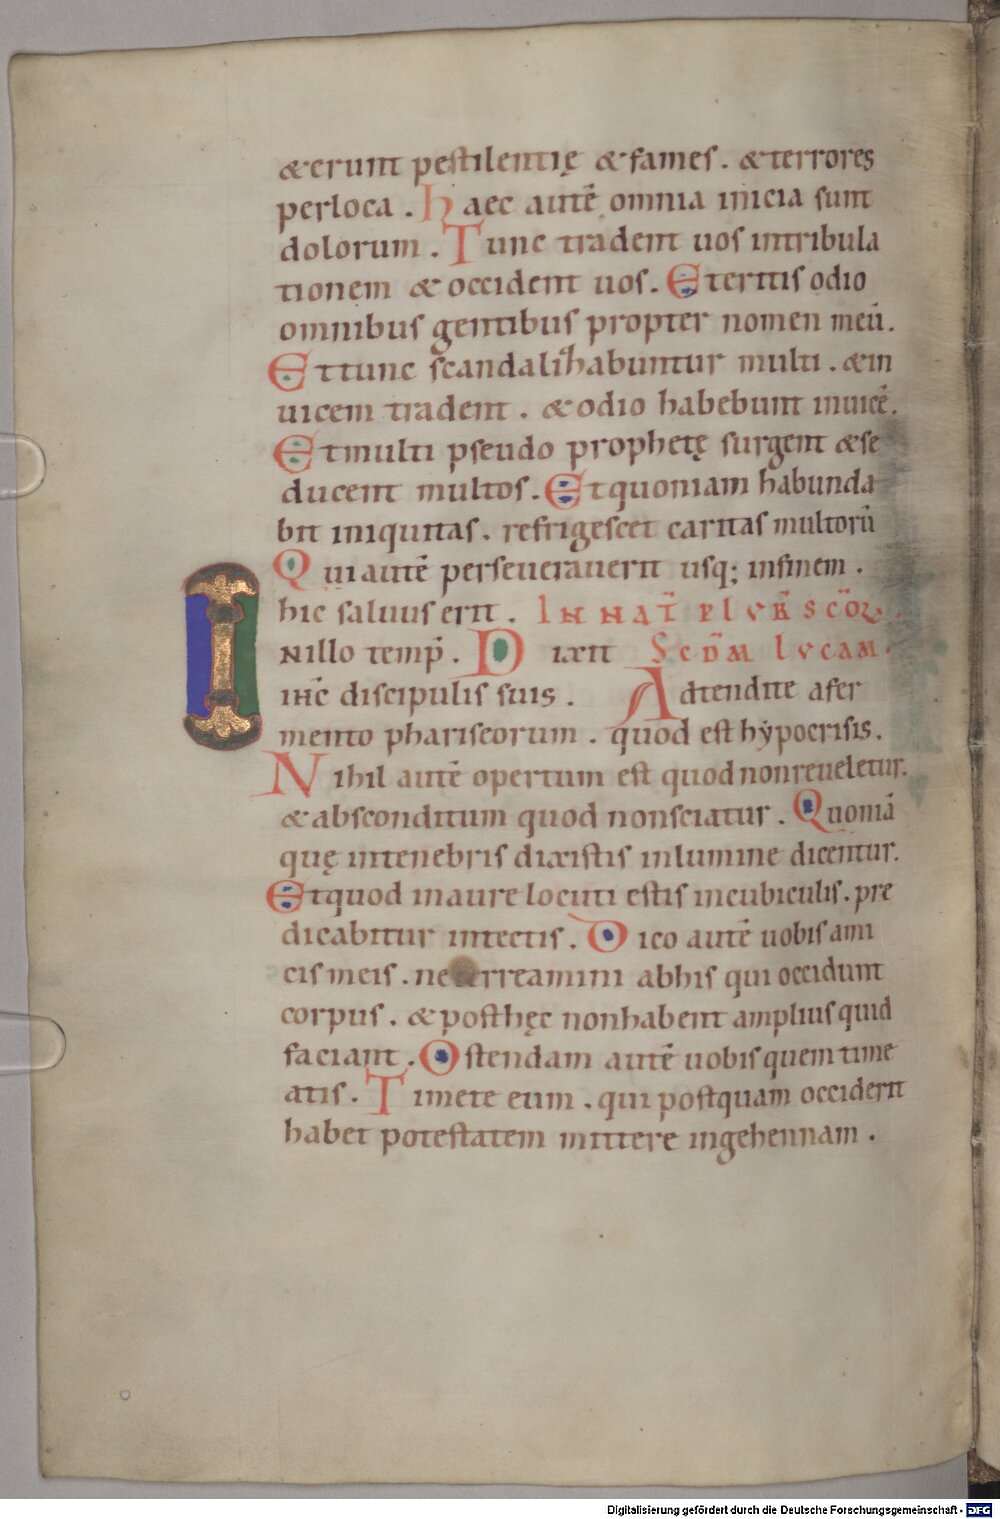 & erunt pestilentię & fames. & terrores
per loca. Haec autē omnia inicia sunt
dolorum. Tunc tradent uos intribula
tionem & occident uos. Et eritis odio
omnibus gentibus propter nomen meū.
Et tunc scandalihabuntur multi. & in
uicem tradent. & odio habebunt inuicē.
Et multi pseudo prophetę surgent & se
ducent multos. Et quoniam habunda
bit iniquitas. refrigescet caritas multorū
Qui autē perseuerauerit usq; infinem.
hic saluus erit. IN NAT PLVR SCOR.
Nillo temp̄. Dixit SCDM LVCAM.
ihc̄ discipulis suis. Adtendite a fer
mento phariseorum. quod est hẏpocrisis.
Nihil autē opertum est quod nonreueletur.
& absconditum quod nonsciatur. Quoniā
quę intenebris dixistis inlumine dicentur.
Et quod inaure locuti estis incubiculis. pre
dicabitur intectis. Dico autē uobis ami
cis meis. ne terreamini abhis qui occidunt
corpus. & posthęc nonhabent amplius quid
faciant. Ostendam autē uobis quem time
atis. Timete eum. qui postquam occiderit
habet potestatem mittere ingehennam.
Digitalisierung gefördert durch die Deutsche Forschungsgemeinschaft - DFG